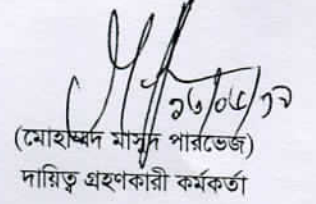 ১৬/০৫/১২
(মোহাম্মদ মাসুদ পারভেজ)
দায়িত্ব গ্রহণকারী কর্মকর্তা